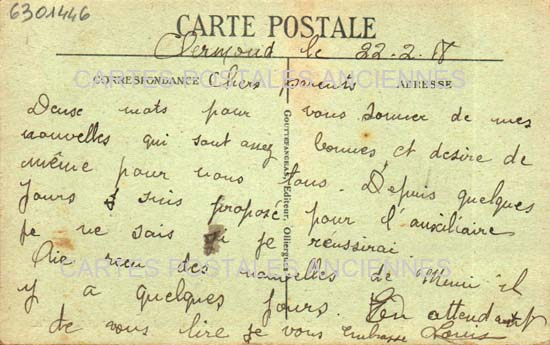 6301446
CARTE POSTALE
Clermond le 22-2-18
CORRESPONDANCE Chers parents ADRESSE
CARTES POSTALES ANCIENNES
Deux mots pour vous donner de mes
nouvelles qui sont assez bonnes et desire de
même pour vous tous. Depuis quelques
jours je suis proposé pour l'auxiliaire
je ne sais si je réussirai
CARTES POSTALES ANCIENNES
rien des nouvelles de il
y a quelques jours. En attendant
de vous lire je vous embrasse Louis
GOUTTEFANGEAS, Editeur, Olliergues